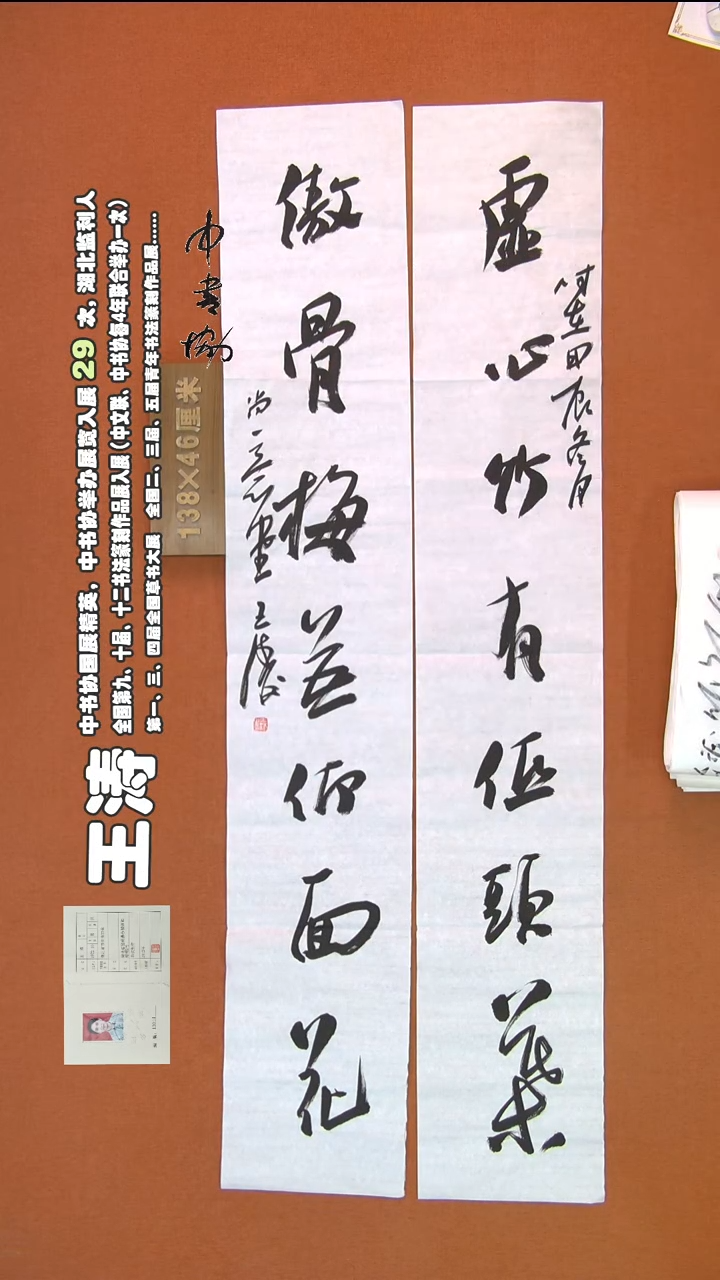 虛心竹有低頭葉
時在甲辰冬月
傲骨梅無仰面花
尚意堂 王濤
中書協
138×46厘米
王涛
中书协国展精英，中书协举办展览入展 29 次，湖北监利人
全国第九、十届、十二书法篆刻作品展入展（中文联、中书协每4年联合举办一次）
第一、三、四届全国草书大展 全国二、三届、五届青年书法篆刻作品展......